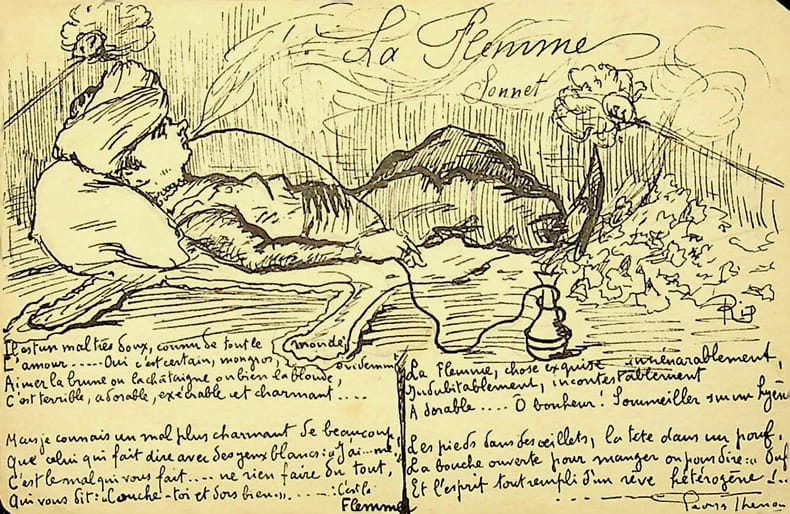 La Flemme
Sonnet
Rip
Il est un mal très doux, connu de tout le monde
L'amour ..... Oui c'est certain, mon gros, évidemment
Aimer la brune ou la châtaigne ou bien la blonde,
C'est terrible, adorable, exécrable et charmant ....
Mais je connais un mal plus charmant de beaucoup,
Que celui qui fait dire avec des yeux blancs: "J'ai... me"
C'est le mal qui vous fait .... ne rien faire du tout,
Qui vous dit: "Couche-toi et dors bien" ..... : C'est la
Flemme
La Flemme, chose exquise innénarablement,
Indubitablement, incontestablement
Adorable .... Ô bonheur! Sommeiller sur un
Les pieds dans des œillets, la tête dans un pouf,
La bouche ouverte pour manger ou pour dire: "Ouf"
Et l'esprit tout rempli d'un rêve hétérogène!..